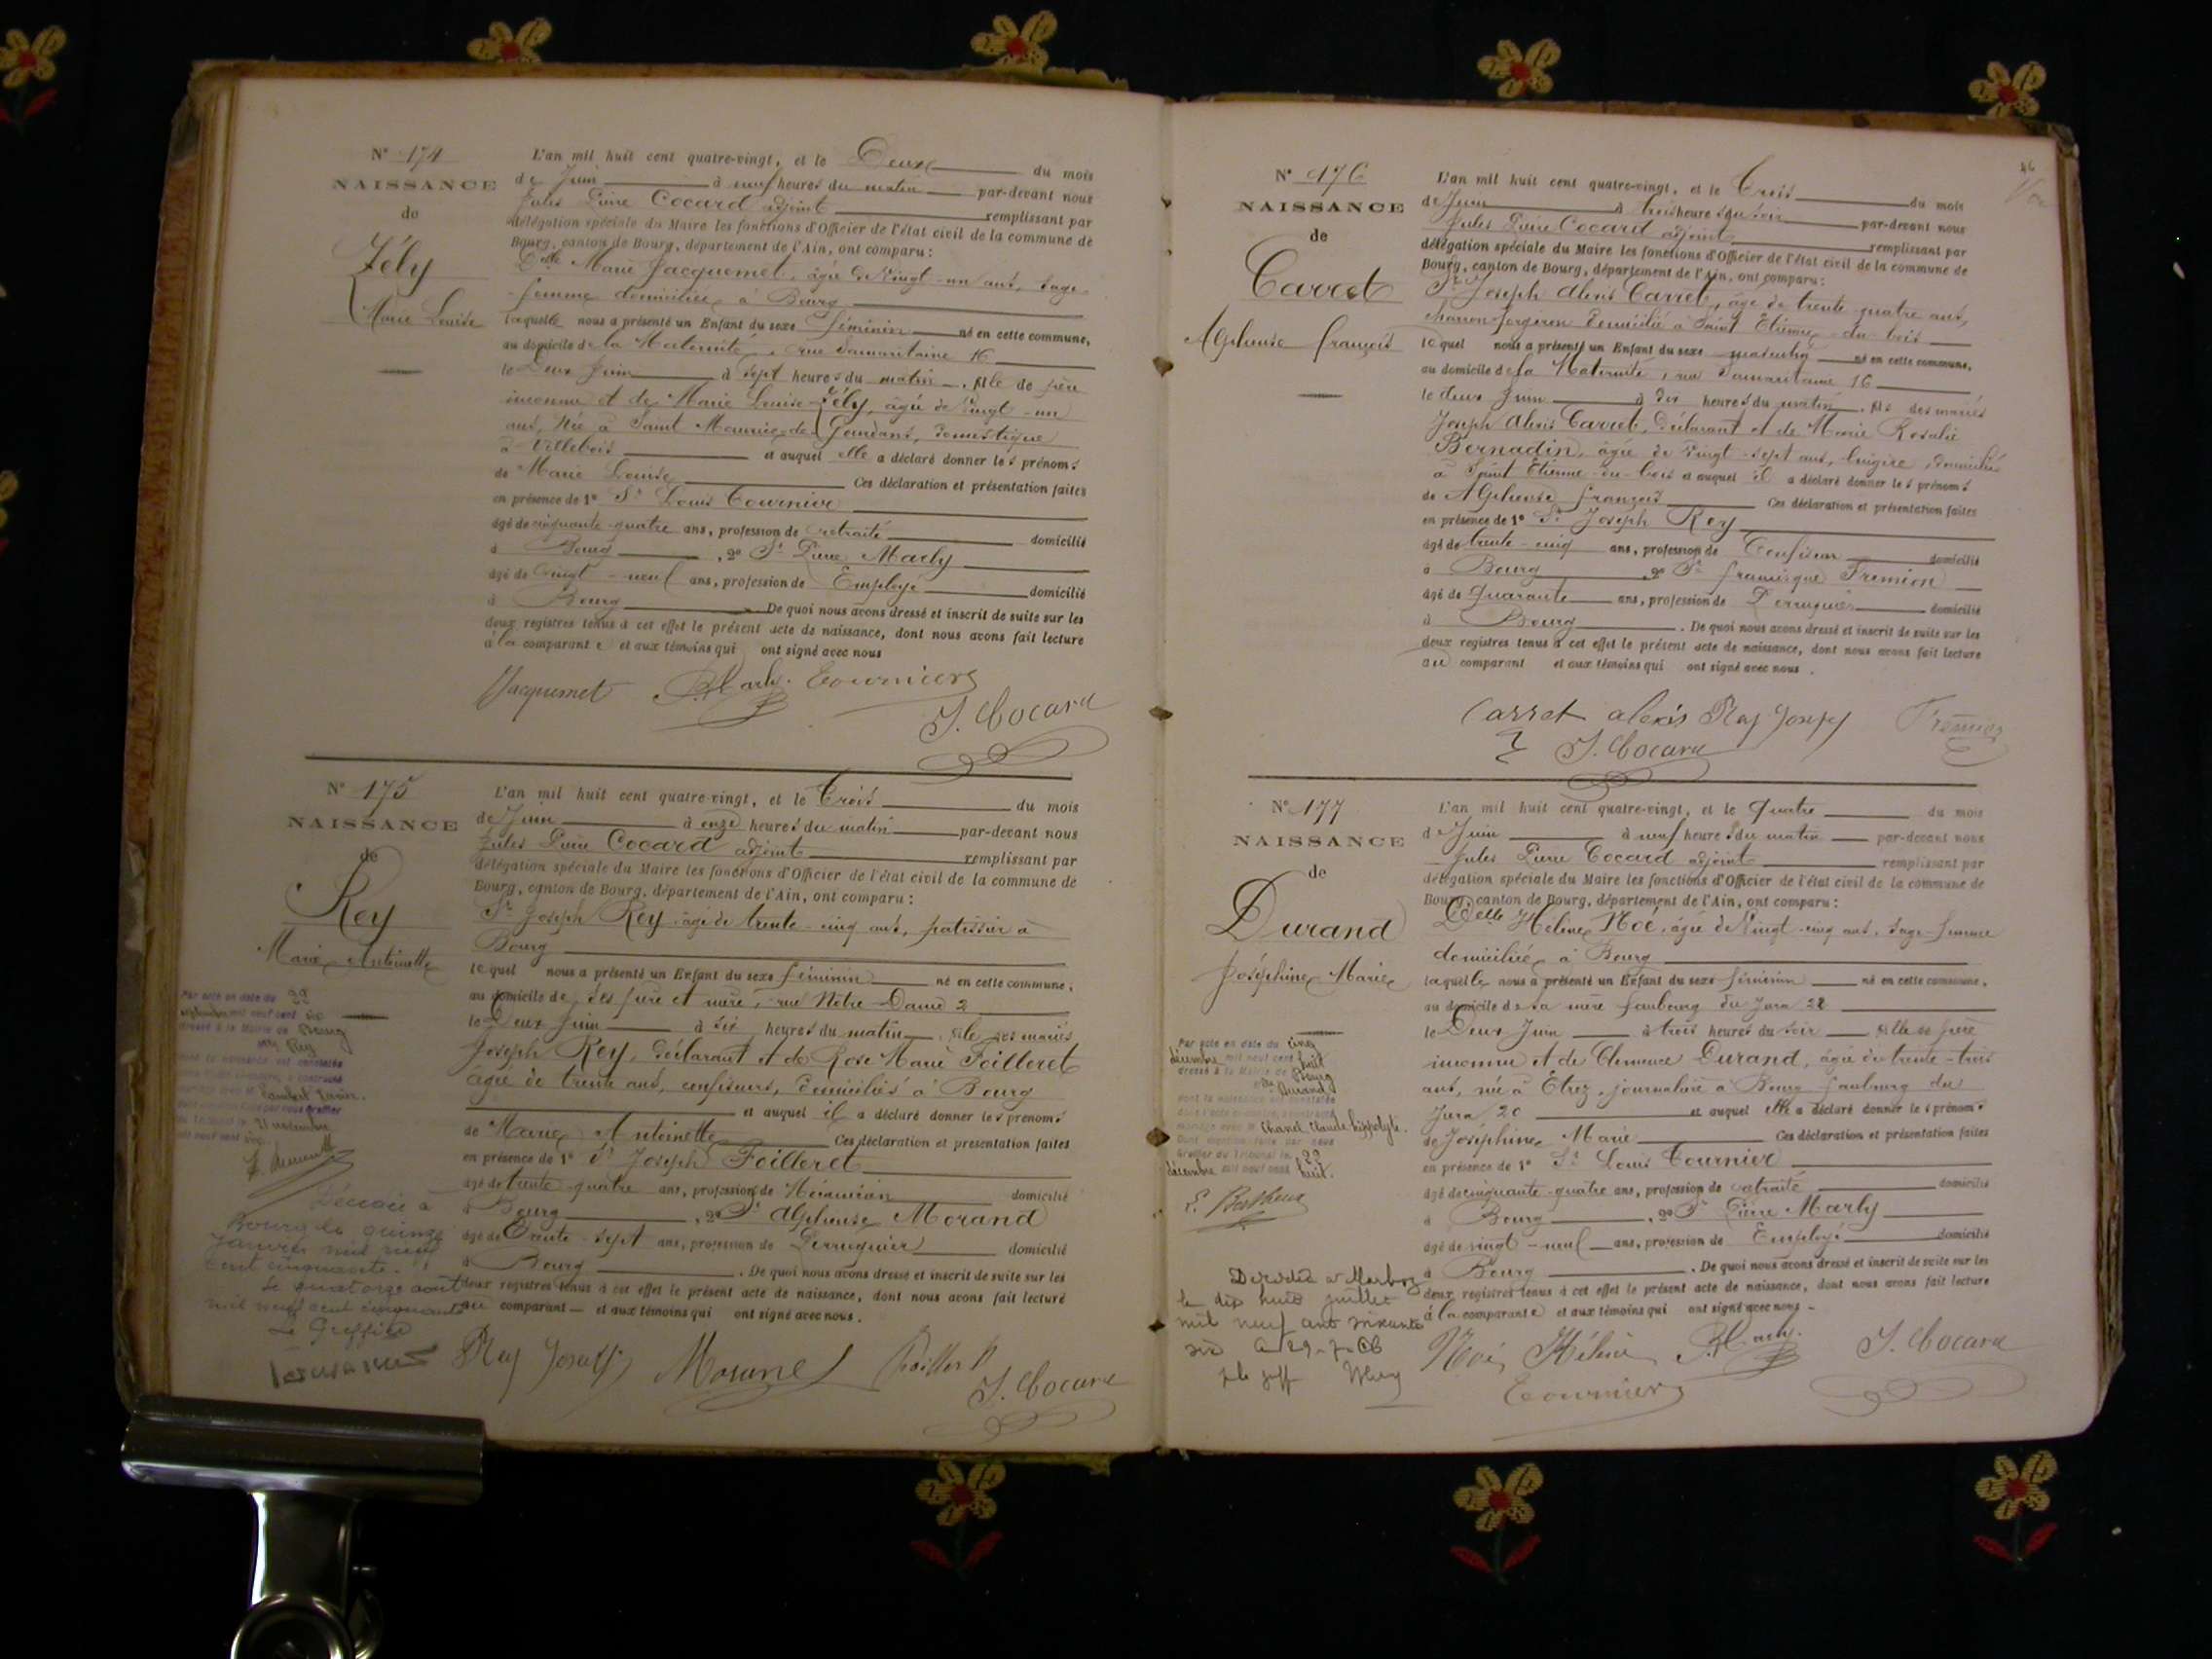 N° 174
NAISSANCE
de
Zély
Marie Louise
L'an mil huit cent quatre-vingt, et le Deux du mois
de Juin à neuf heures du matin par-devant nous
Jules Pierre Cocard adjoint remplissant par
délégation spéciale du Maire les fonctions d'Officier de l'état civil de la commune de
Bourg, canton de Bourg, département de l'Ain, ont comparu :
Delle Marie Jacquemet, âgée de Vingt-un ans, sage-
femme domiciliée à Bourg
laquelle nous a présenté un Enfant du sexe féminin né en cette commune,
au domicile de la Maternité, rue Samaritaine 16
le Deux Juin à sept heures du matin, fille de père
inconnu et de Marie Louise Zély, âgée de Vingt-un
ans, Née à Saint Maurice de Gourdans, domestique
à Villebois et auquel elle a déclaré donner les prénoms
de Marie Louise Ces déclaration et présentation faites
en présence de 1° Sr Louis Tournier
âgé de cinquante-quatre ans, profession de retraité domicilié
à Bourg, 2° Sr Pierre Marly
âgé de Vingt-neuf ans, profession de Employé domicilié
à Bourg De quoi nous avons dressé et inscrit de suite sur les
deux registres tenus à cet effet le présent acte de naissance, dont nous avons fait lecture
à la comparante et aux témoins qui ont signé avec nous
Jacquemet P. Marly Tournier
J. Cocard
N° 175
NAISSANCE
de
Rey
Marie Antoinette
Par acte en date du 29
septembre mil neuf cent six
dressé à la Mairie de Bourg
Rey
dont la naissance est constatée
Lambert
21 novembre
mil neuf cent six
Décédée à
Bourg le quinze
Janvier mil neuf
cent cinquante.
Le quatorze août
mil neuf cent cinquante
Le Greffier
L'an mil huit cent quatre-vingt, et le Trois du mois
de Juin à onze heures du matin par-devant nous
Jules Pierre Cocard adjoint remplissant par
délégation spéciale du Maire les fonctions d'Officier de l'état civil de la commune de
Bourg, canton de Bourg, département de l'Ain, ont comparu :
Sr Joseph Rey âgé de trente-cinq ans, patissier à
Bourg
lequel nous a présenté un Enfant du sexe féminin né en cette commune,
au domicile de ses père et mère, rue Notre-Dame 2
le Deux Juin à six heures du matin, fille des mariés
Joseph Rey, déclarant et de Rose Marie Foilleret
âgée de trente ans, confiseurs, domiciliés à Bourg
et auquel il a déclaré donner les prénoms
de Marie Antoinette Ces déclaration et présentation faites
en présence de 1° Sr Joseph Foilleret
âgé de trente-quatre ans, profession de Mécanicien domicilié
à Bourg, 2° Sr Alphonse Morand
âgé de Trente-sept ans, profession de Perruquier domicilié
à Bourg. De quoi nous avons dressé et inscrit de suite sur les
deux registres tenus à cet effet le présent acte de naissance, dont nous avons fait lecture
au comparant et aux témoins qui ont signé avec nous.
Rey Joseph Morand Foilleret
J. Cocard
46
N° 176
NAISSANCE
de
Carret
Alphonse François
L'an mil huit cent quatre-vingt, et le Trois du mois
de Juin à trois heures du soir par-devant nous
Jules Pierre Cocard adjoint remplissant par
délégation spéciale du Maire les fonctions d'Officier de l'état civil de la commune de
Bourg, canton de Bourg, département de l'Ain, ont comparu :
Sr Joseph Alexis Carret, âgé de trente-quatre ans,
charron forgeron domicilié à Saint Etienne-du-bois
lequel nous a présenté un Enfant du sexe masculin né en cette commune,
au domicile de la Maternité, rue Samaritaine 16
le deux Juin à dix heures du matin, fils des mariés
Joseph Alexis Carret, déclarant et de Marie Rosalie
Bernadin, âgée de Vingt-sept ans, lingère, domiciliés
à Saint Etienne-du-bois et auquel il a déclaré donner les prénoms
de Alphonse François Ces déclaration et présentation faites
en présence de 1° Sr Joseph Rey
âgé de trente-cinq ans, profession de Confiseur domicilié
à Bourg, 2° Sr Francisque Fremion
âgé de Quarante ans, profession de Perruquier domicilié
à Bourg. De quoi nous avons dressé et inscrit de suite sur les
deux registres tenus à cet effet le présent acte de naissance, dont nous avons fait lecture
au comparant et aux témoins qui ont signé avec nous.
Carret alexis Rey Joseph Fremion
J. Cocard
N° 177
NAISSANCE
de
Durand
Joséphine Marie
Par acte en date du cinq
décembre mil neuf cent huit
dressé à la Mairie de Bourg
Durand
dont la naissance est constatée
mariage avec Chanel Claude hippolyte.
Dont mention faite par nous
Greffier du Tribunal le 29
décembre mil neuf cent huit.
Décédée à Marboz
le dix huit juillet
mil neuf cent soixante
six
L'an mil huit cent quatre-vingt, et le Quatre du mois
de Juin à neuf heures du matin par-devant nous
Jules Pierre Cocard adjoint remplissant par
délégation spéciale du Maire les fonctions d'Officier de l'état civil de la commune de
Bourg, canton de Bourg, département de l'Ain, ont comparu :
Delle Hélène Noé, âgée de Vingt-cinq ans, sage-femme
domiciliée à Bourg
laquelle nous a présenté un Enfant du sexe féminin né en cette commune,
au domicile de sa mère faubourg du Jura 28
le Deux Juin à trois heures du soir fille de père
inconnu et de Clémence Durand, âgée de trente-trois
ans, née à Etrez, journalière à Bourg faubourg du
Jura 20 et auquel elle a déclaré donner les prénoms
de Joséphine Marie Ces déclaration et présentation faites
en présence de 1° Sr Louis Tournier
âgé de cinquante-quatre ans, profession de retraité domicilié
à Bourg, 2° Sr Pierre Marly
âgé de vingt-neuf ans, profession de Employé domicilié
à Bourg. De quoi nous avons dressé et inscrit de suite sur les
deux registres tenus à cet effet le présent acte de naissance, dont nous avons fait lecture
à la comparante et aux témoins qui ont signé avec nous
Noé Hélène P. Marly J. Cocard
Tournier